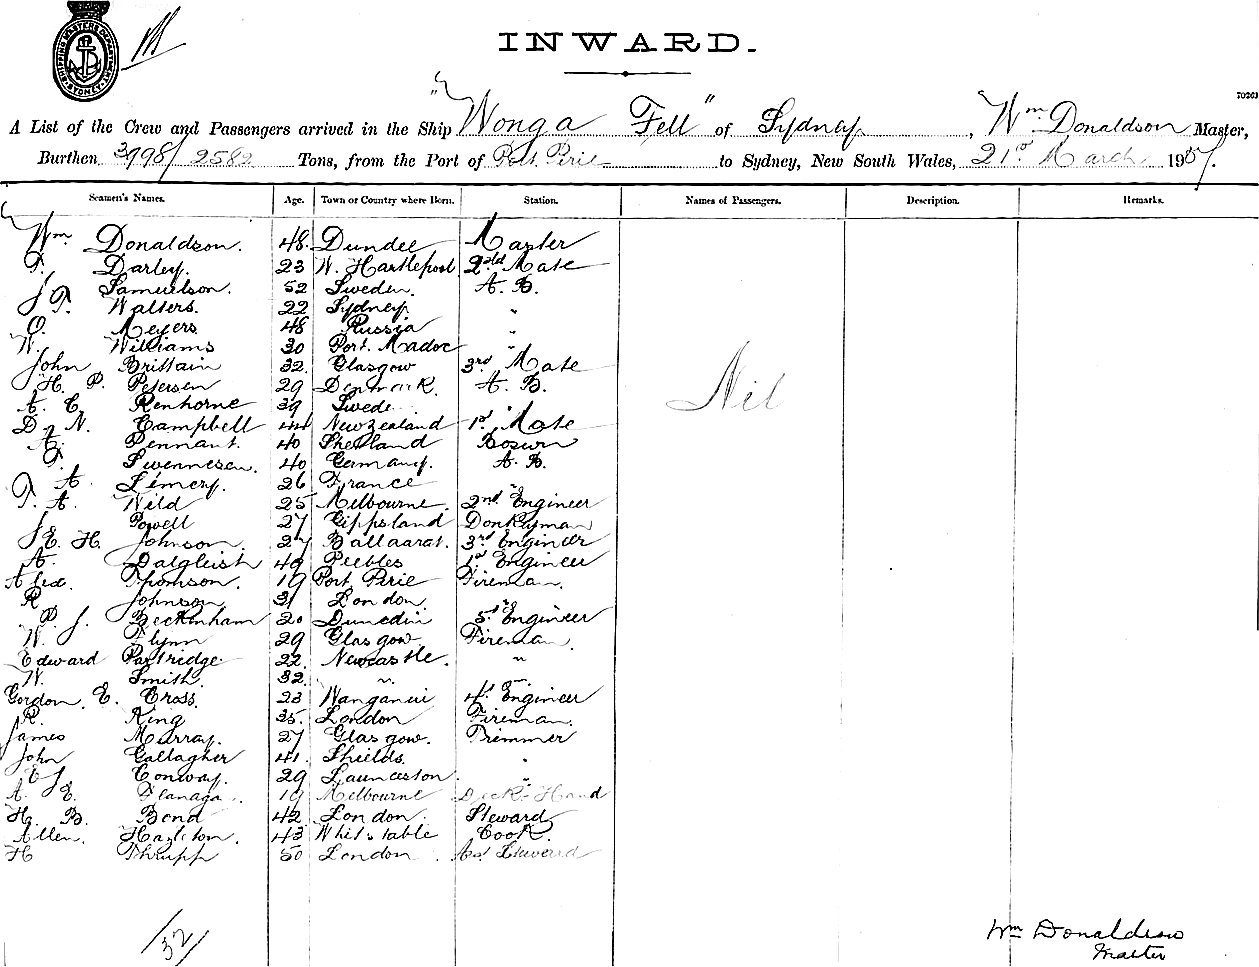 SHIPPING MASTERS DEPARTMENT SYDNEY
INWARD.
70263
A List of the Crew and Passengers arrived in the Ship "Wonga Fell" of Sydney, Wm Donaldson Master,
Burthen 3998/2582 Tons, from the Port of Port Pirie to Sydney, New South Wales, 21st March 1907.
Seamen's Names. Age. Town or Country where Born. Station. Names of Passengers. Description. Remarks.
Wm Donaldson. 48. Dundee Master
F. Darley. 23 W. Hartlepool 2nd Mate
J. Samuelson. 52 Sweden. A. B.
F. Walters. 22 Sydney. "
O. Meyers 48 Russia "
W. Williams 30 Port. Madoc "
John Brittain 32. Glasgow 3rd Mate
H. P. Petersen 29 Denmark. A. B.
A. C. Renhorne 39 Swede. "
D. N. Campbell 44 New Zealand 1st Mate
A. Pennant. 40 Shetland Bosun
F. Swennesen. 40 Germany. A. B.
A. Limery. 26 France "
F. A. Wild 25 Melbourne. 2nd Engineer
J. Powell 27 Gippsland Donkyman
E. H. Johnson. 27 Ballaarat. 3rd Engineer
A. Dalgleish 49 Peebles 1st Engineer
Alex. Thomson. 19 Port Pirie Fireman.
R. Johnson 31 London. "
P. J. Beckinham 20 Dunedin 5th Engineer
W. Flynn 29 Glasgow Fireman.
Edward Partridge. 22. Newcastle. "
W. Smith. 32. " "
Gordon E. Cross. 23 Wanganui 4th Engineer
R. King 35. London Fireman.
James Murray. 27 Glasgow. Trimmer
John Gallagher 41. Shields. "
E J Conway. 29 Launceston. "
A. E. Flanaga. 19 Melbourne Deck Hand
H. B. Bond 42 London. Steward
Allen. Hazleton. 43 Whitstable Cook.
H Thrupp 50 London Ast Steward
Nil
32
Wm Donaldson
Master